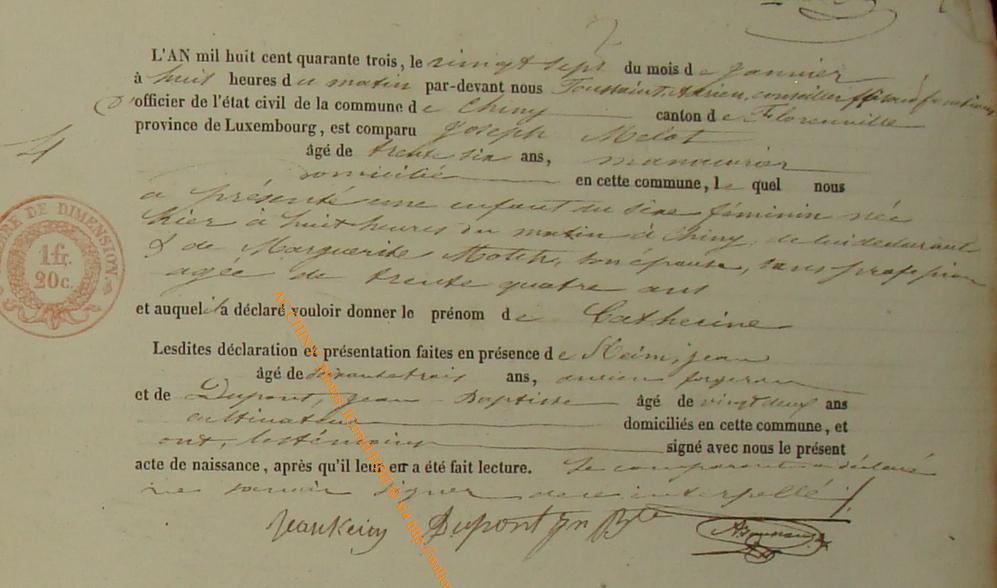 L'AN mil huit cent quarante trois, le vingt sept du mois de janvier
à huit heures du matin par-devant nous Toussaint, Adrien, conseiller faisant fonctions
d'officier de l'état civil de la commune de Chiny canton de Florenville
province de Luxembourg, est comparu Joseph Melot
4
âgé de trente six ans, manoeuvrier
domicilié en cette commune, lequel nous
a présenté une enfant du sexe féminin née
hier à huit heures du matin à Chiny, de lui déclarant
& de Marguerite son épouse, sans profession
agée de trente quatre ans
TIMBRE DE DIMENSION
1 fr.
20 c.
et auquel il a déclaré vouloir donner le prénom de Catherine
Lesdites déclaration et présentation faites en présence de jean
âgé de ans, ancien forgeron
et de Dupont, jean - Baptiste âgé de vingt deux ans
cultivateur domiciliés en cette commune, et
ont, les témoins signé avec nous le présent
acte de naissance, après qu'il leur en a été fait lecture. le comparant a déclaré
ne savoir signer de ce interpellé
Jean Dupont Jn Bte